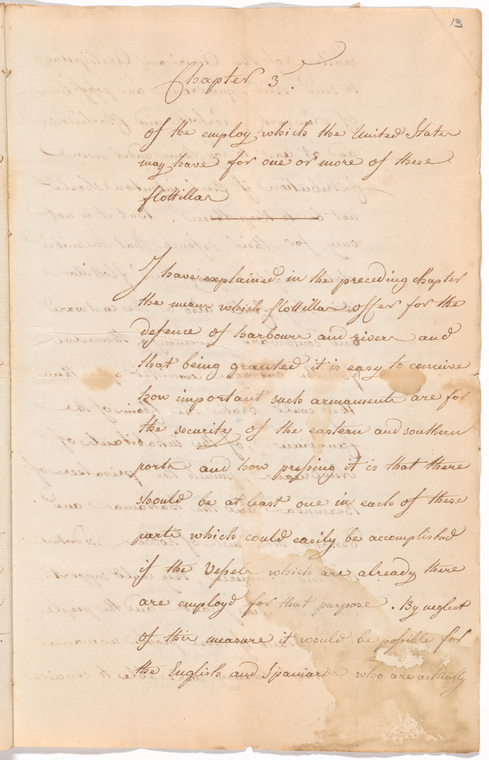 13
Chapter 3.
of the employ which the United States
may have for one or more of these
flottillas
I have explained in the preceding chapter
the means which flottillas offer for the
defence of harbours and rivers and
that being granted it is easy to conceive
how important such armaments are for
the security of the eastern and southern
ports and how pressing it is that there
should be at least one in each of these
parts which could easily be accomplished
if the Vessels which are already there
are employd for that purpose. By neglect
of this measure it would be possible for
the English and Spaniards who are actually